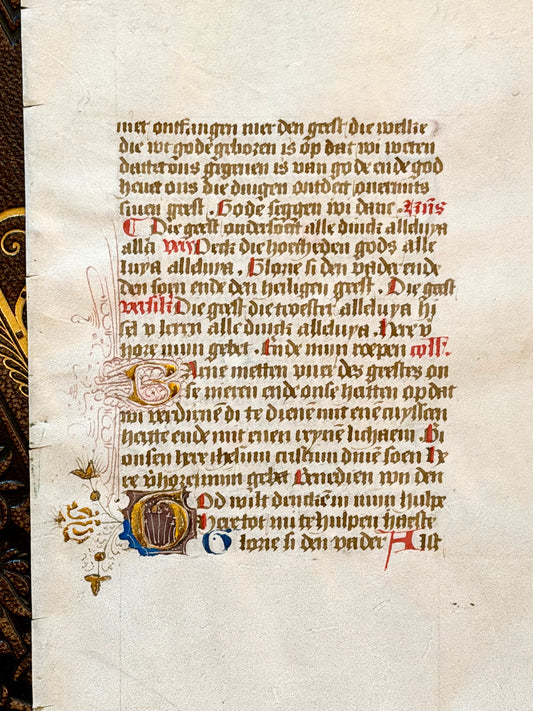 niet ontfangen mer den geest die welke
die wt gode geboren is op dat wi weten
dattet ons gegeuen is van gode ende god
heuet ons die dingen ontdect ouermits
sinen geest . Gode seggen wi danc .
Die geest ondersoect alle dinck alleluya
alla vers Oeck die hoecheden gods alle
luya alleluya . Glorie si den vader ende
den soen ende den heiligen geest . Die geest
versikel Die geest die troester alleluya hi
sal v leren alle dinck alleluya . Here v
hore mijn gebet . Ende mijn roepen coll .
Berne metten viere des geestes on
se nieren ende onse herten op dat
wi verdienē di te dienē mit enē cuysscen
herte ende mit enen reynē lichaem . Bi
onsen here ihesum cristum dinen soen He
re v̄hore mijn gebet Benedien wi den
God wilt dencken in mijn hulpe
Here tot mi te hulpen haeste
Glorie si den vader Alst